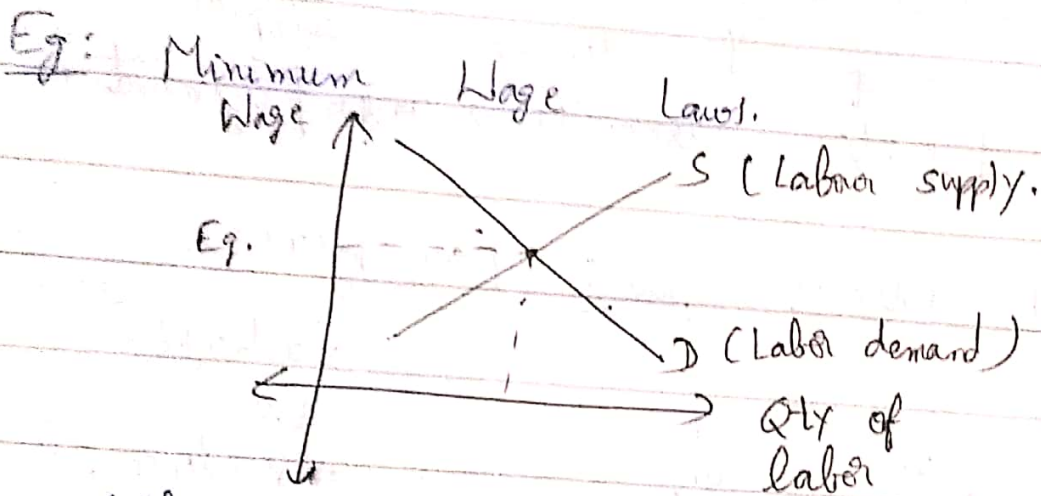 Eg: Minimum Wage Laws.
Wage
S (Labour supply.
Eq.
D (Labor demand)
Qty of
labor